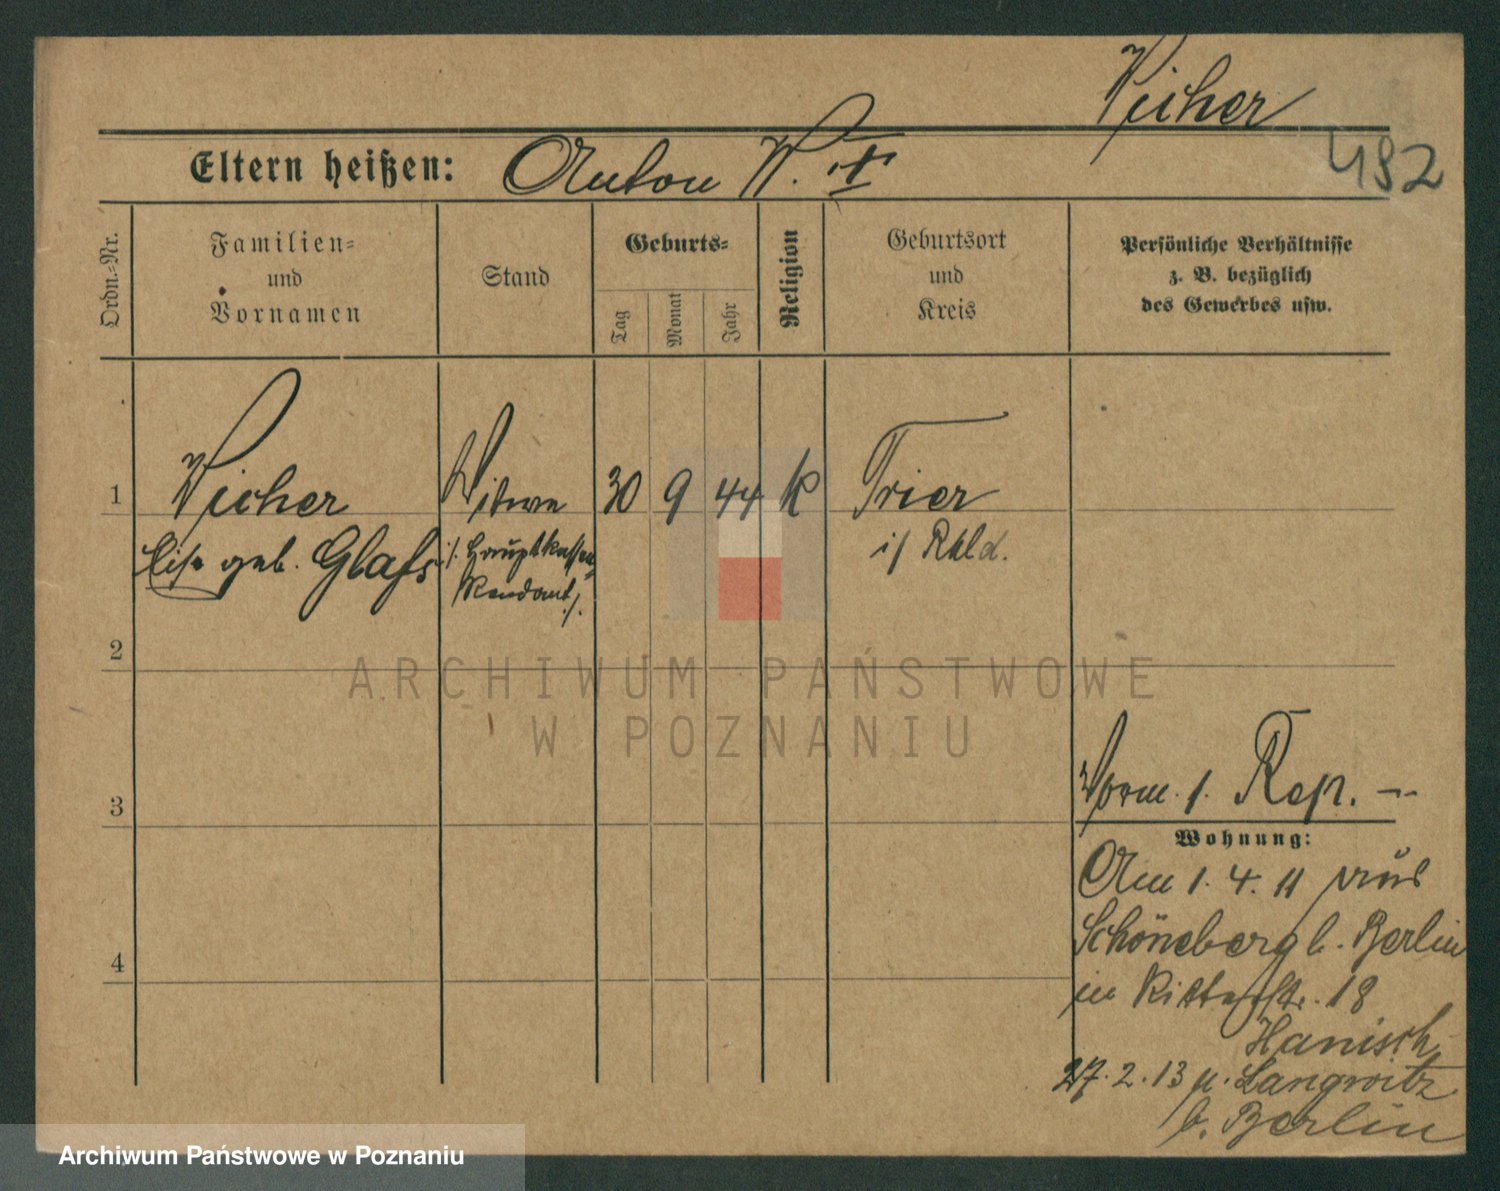 Wicher
Eltern heißen: Anton W. †
492
Ordn.=Nr.
Familien=
und
Vornamen
Stand
Geburts=
Tag
Monat
Jahr
Religion
Geburtsort
und
Kreis
Persönliche Verhältnisse
z. B. bezüglich
des Gewerbes usw.
1
Wicher
Elise geb. Glaß
Witwe
/. Hauptkassen=
Rendant /.
30 9 44 K
Trier
i/ Rhld.
2
3
4
ARCHIWUM PAŃSTWOWE
W POZNANIU
Verm. s. Rep. —
Wohnung:
Am 1. 4. 11 aus
Schöneberg b. Berlin
in Ritterstr. 18
Hanisch
27. 2. 13 n. Langwitz
b. Berlin
Archiwum Państwowe w Poznaniu